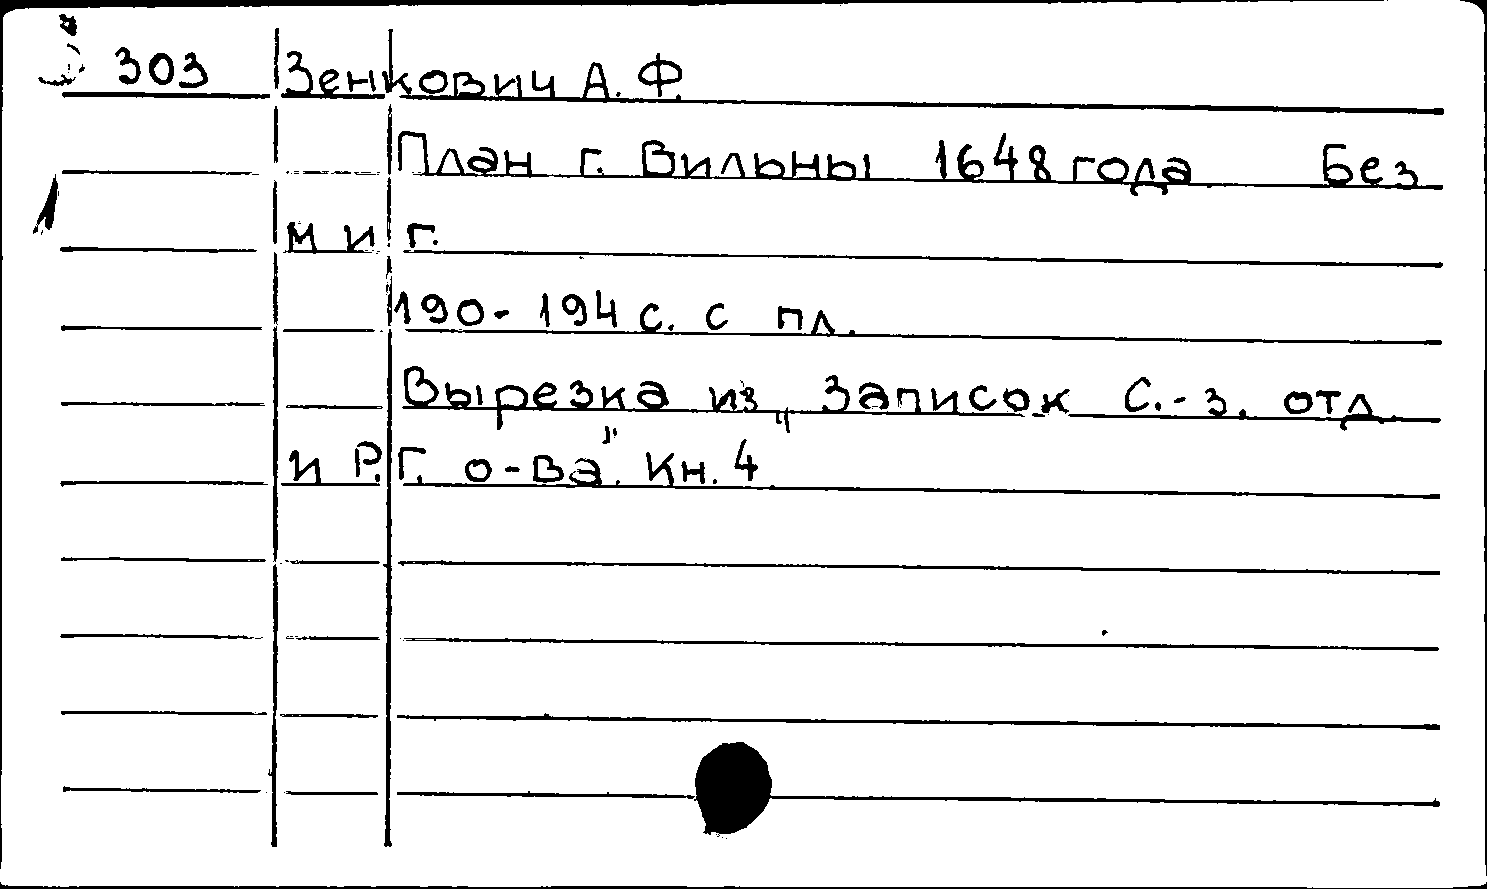 303 Зенкович А. Ф.
План г. Вильны 1648 года Без
м и г.
190-194 с. с пл.
Вырезка из „Записок С.-з. отд.
и Р.Г. о-ва". Кн. 4